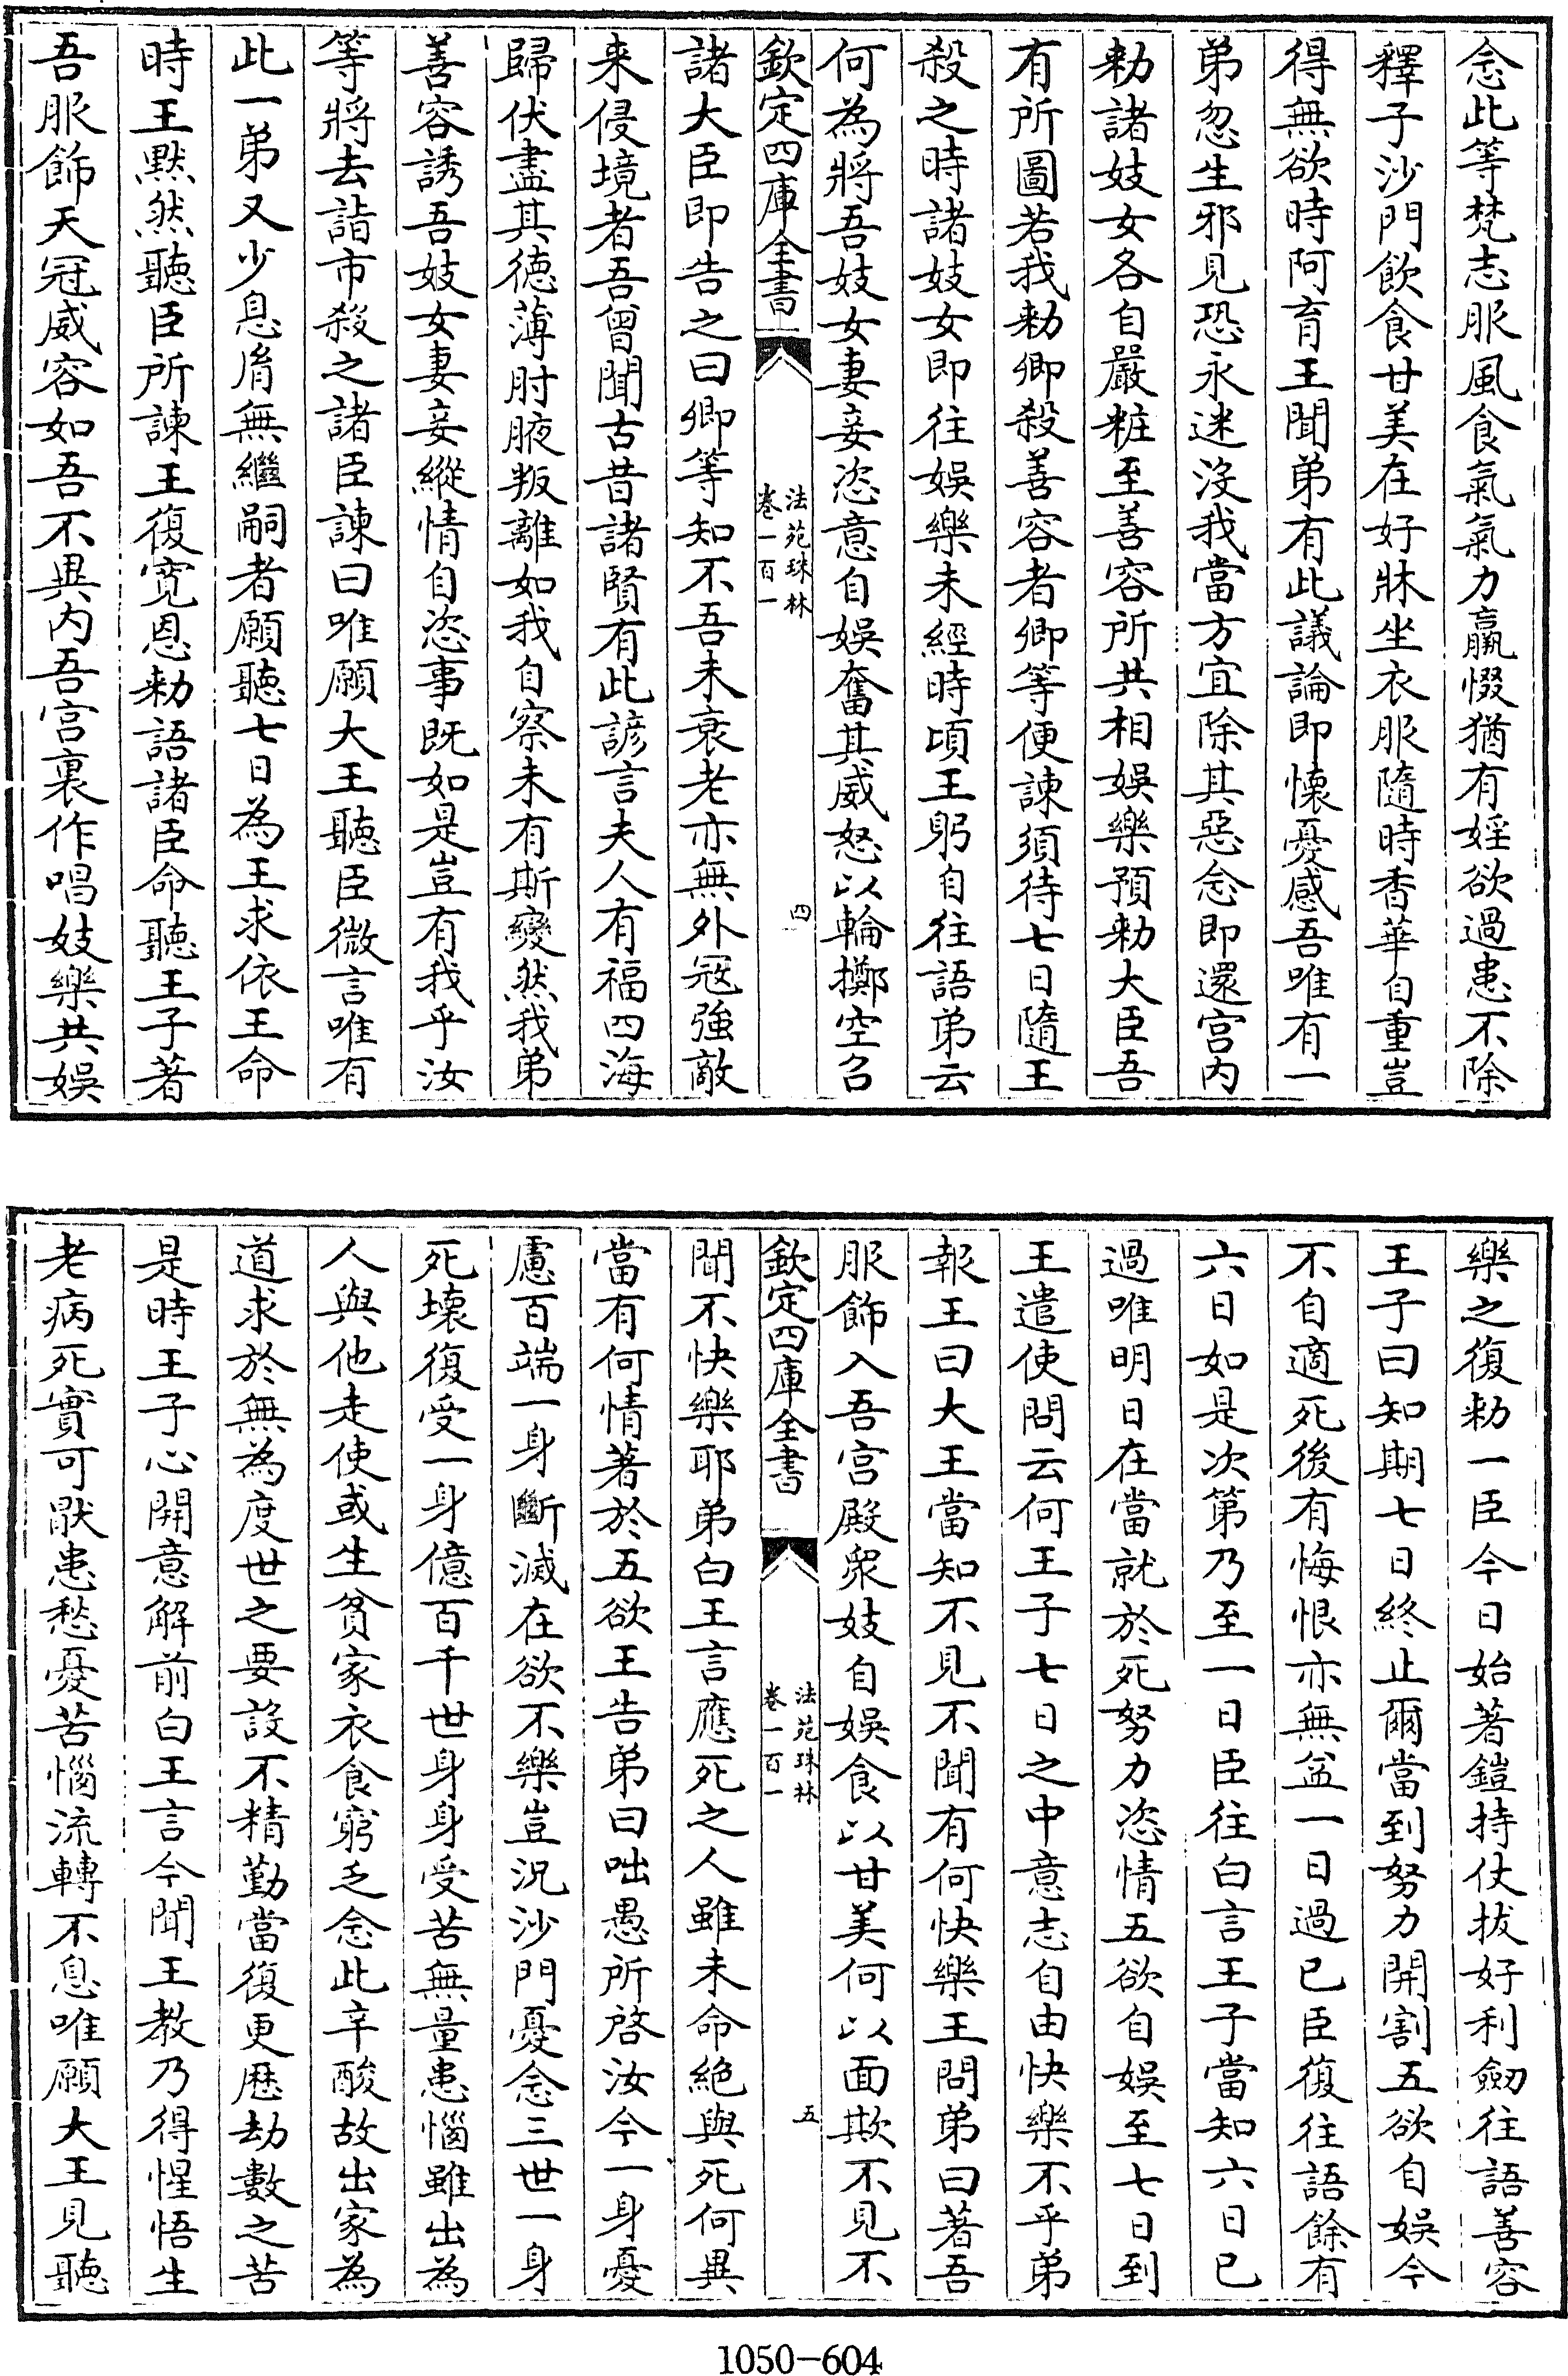 念此等梵志服風食氣氣力羸惙猶有婬欲過患不除
釋子沙門飲食甘美在好牀坐衣服隨時香華自重豈
得無欲時阿育王聞弟有此議論即懷憂感吾唯有一
弟忽生邪見恐永迷没我當方宜除其惡念即還宫内
勅諸妓女各自嚴粧至善容所共相娱樂預勅大臣吾
有所圖若我勅卿殺善容者卿等便諫須待七日隨王
殺之時諸妓女即往娱樂未經時頃王躬自往語弟云
何為將吾妓女妻妾恣意自娱奮其威怒以輪擲空召
欽定四庫全書
法苑珠林
卷一百一
四
諸大臣即告之曰卿等知不吾未衰老亦無外冦強敵
来侵境者吾曾聞古昔諸賢有此諺言夫人有福四海
歸伏盡其徳薄肘腋叛離如我自察未有斯變然我弟
善容誘吾妓女妻妾縱情自恣事既如是豈有我乎汝
等將去詣市殺之諸臣諫曰唯願大王聽臣微言唯有
此一弟又少息胤無繼嗣者願聽七日為王求依王命
時王默然聽臣所諫王復寛恩勅語諸臣命聽王子著
吾服飾天冠威容如吾不異内吾宫裏作唱妓樂共娱
樂之復勅一臣今日始著鎧持仗拔好利劒往語善容
王子曰知期七日終止爾當到努力開割五欲自娱今
不自適死後有悔恨亦無益一日過已臣復往語餘有
六日如是次第乃至一日臣往白言王子當知六日已
過唯明日在當就於死努力恣情五欲自娱至七日到
王遣使問云何王子七日之中意志自由快樂不乎弟
報王曰大王當知不見不聞有何快樂王問弟曰著吾
服飾入吾宫殿衆妓自娱食以甘美何以面欺不見不
欽定四庫全書
法苑珠林
卷一百一
五
聞不快樂耶弟白王言應死之人雖未命絶與死何異
當有何情著於五欲王告弟曰咄愚所啓汝今一身憂
慮百端一身斷滅在欲不樂豈況沙門憂念三世一身
死壊復受一身億百千世身身受苦無量患惱雖出為
人與他走使或生貧家衣食窮乏念此辛酸故出家為
道求於無為度世之要設不精勤當復更歴劫數之苦
是時王子心開意解前白王言今聞王教乃得惺悟生
老病死實可厭患愁憂苦惱流轉不息唯願大王見聽
1050-604